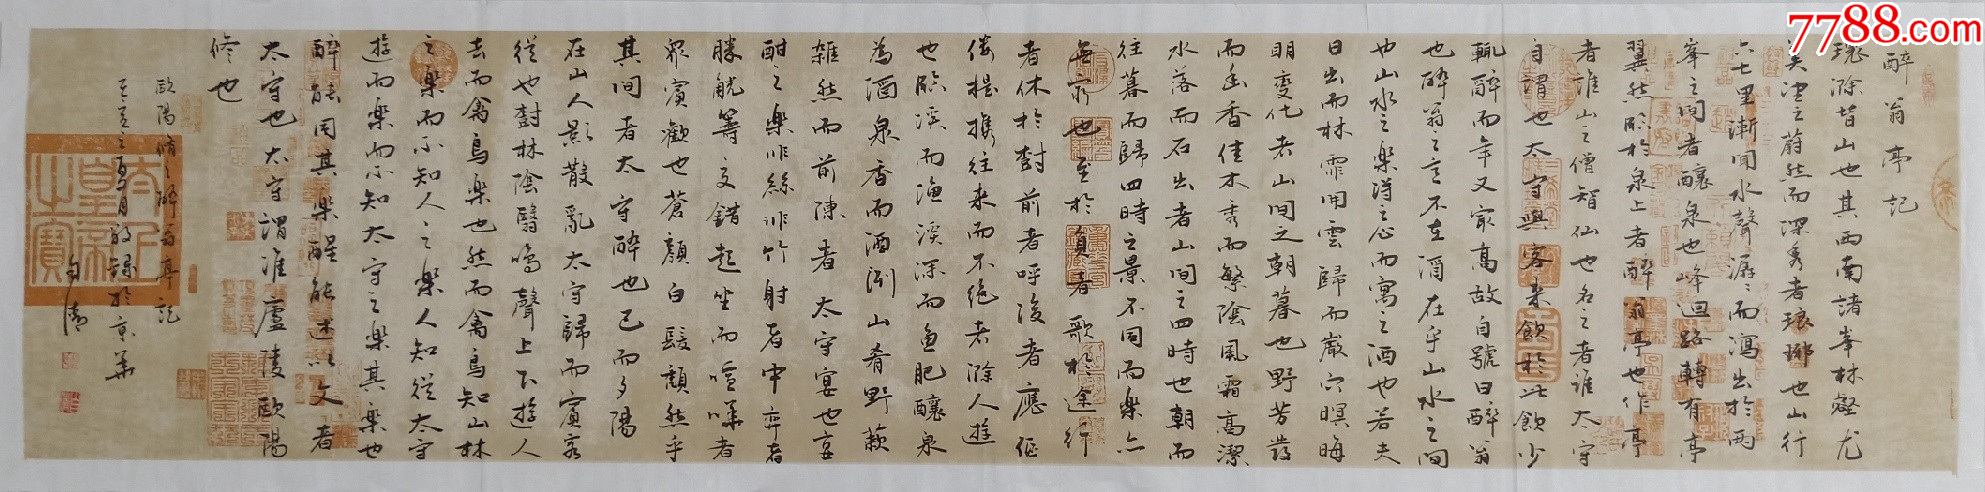 7788.com
醉翁亭記
環滁皆山也其西南諸峯林壑尤
美望之蔚然而深秀者琅琊也山行
六七里漸聞水聲潺々而瀉出於兩
峯之間者釀泉也峰回路轉有亭
翼然臨於泉上者醉翁亭也作亭
者誰山之僧智仙也名之者誰太守
自謂也太守與客來飲於此飲少
輒醉而年又最高故自號曰醉翁
也醉翁之意不在酒在乎山水之間
也山水之樂得之心而寓之酒也若夫
日出而林霏開雲歸而巖穴暝晦
明變化者山間之朝暮也野芳發
而幽香佳木秀而繁陰風霜高潔
水落而石出者山間之四時也朝而
往暮而歸四時之景不同而樂亦
無窮也至於負者歌於途行
者休於樹前者呼後者應傴
僂提攜往來而不絶者滁人遊
也臨溪而漁溪深而魚肥釀泉
為酒泉香而酒洌山肴野蔌
雜然而前陳者太守宴也宴
酣之樂非絲非竹射者中弈者
勝觥籌交錯起坐而喧嘩者
衆賓歡也蒼顔白髮頹然乎
其間者太守醉也已而夕陽
在山人影散亂太守歸而賓客
從也樹林陰翳鳴聲上下遊人
去而禽鳥樂也然而禽鳥知山林
之樂而不知人之樂人知從太守
遊而樂而不知太守之樂其樂也
醉能同其樂醒能述以文者
太守也太守謂誰廬陵歐陽
修也
歐陽脩之醉翁亭記
之夏月敬錄於京華
太上皇帝之寶